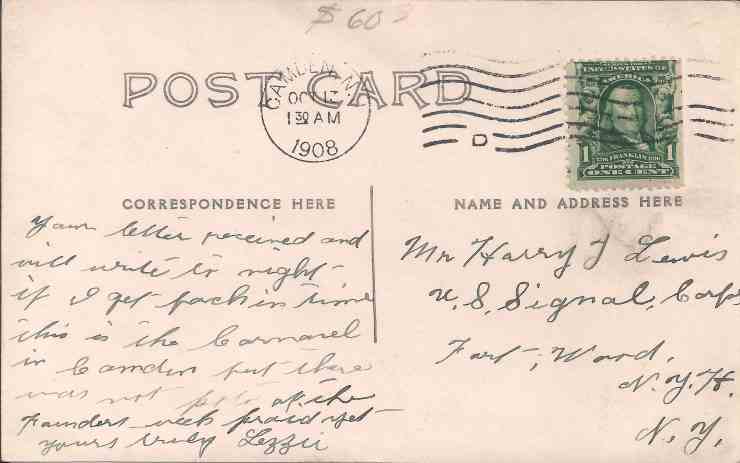 $ 60
POST CARD
CAMDEN, N.J.
OCT 13
1 30 AM
1908
D
UNITED STATES OF
AMERICA
1
FRANKLIN
POSTAGE
ONE CENT
CORRESPONDENCE HERE
NAME AND ADDRESS HERE
Your letter received and
will write to night
if I get back in time
this is the Carnavel
in Camden but there
was not of the
Founders week praid yet
yours truly Lizzie
Mr Harry J Lewis
U, S, Signal, Corps
Fort, Wood,
N.Y.H.
N, Y,